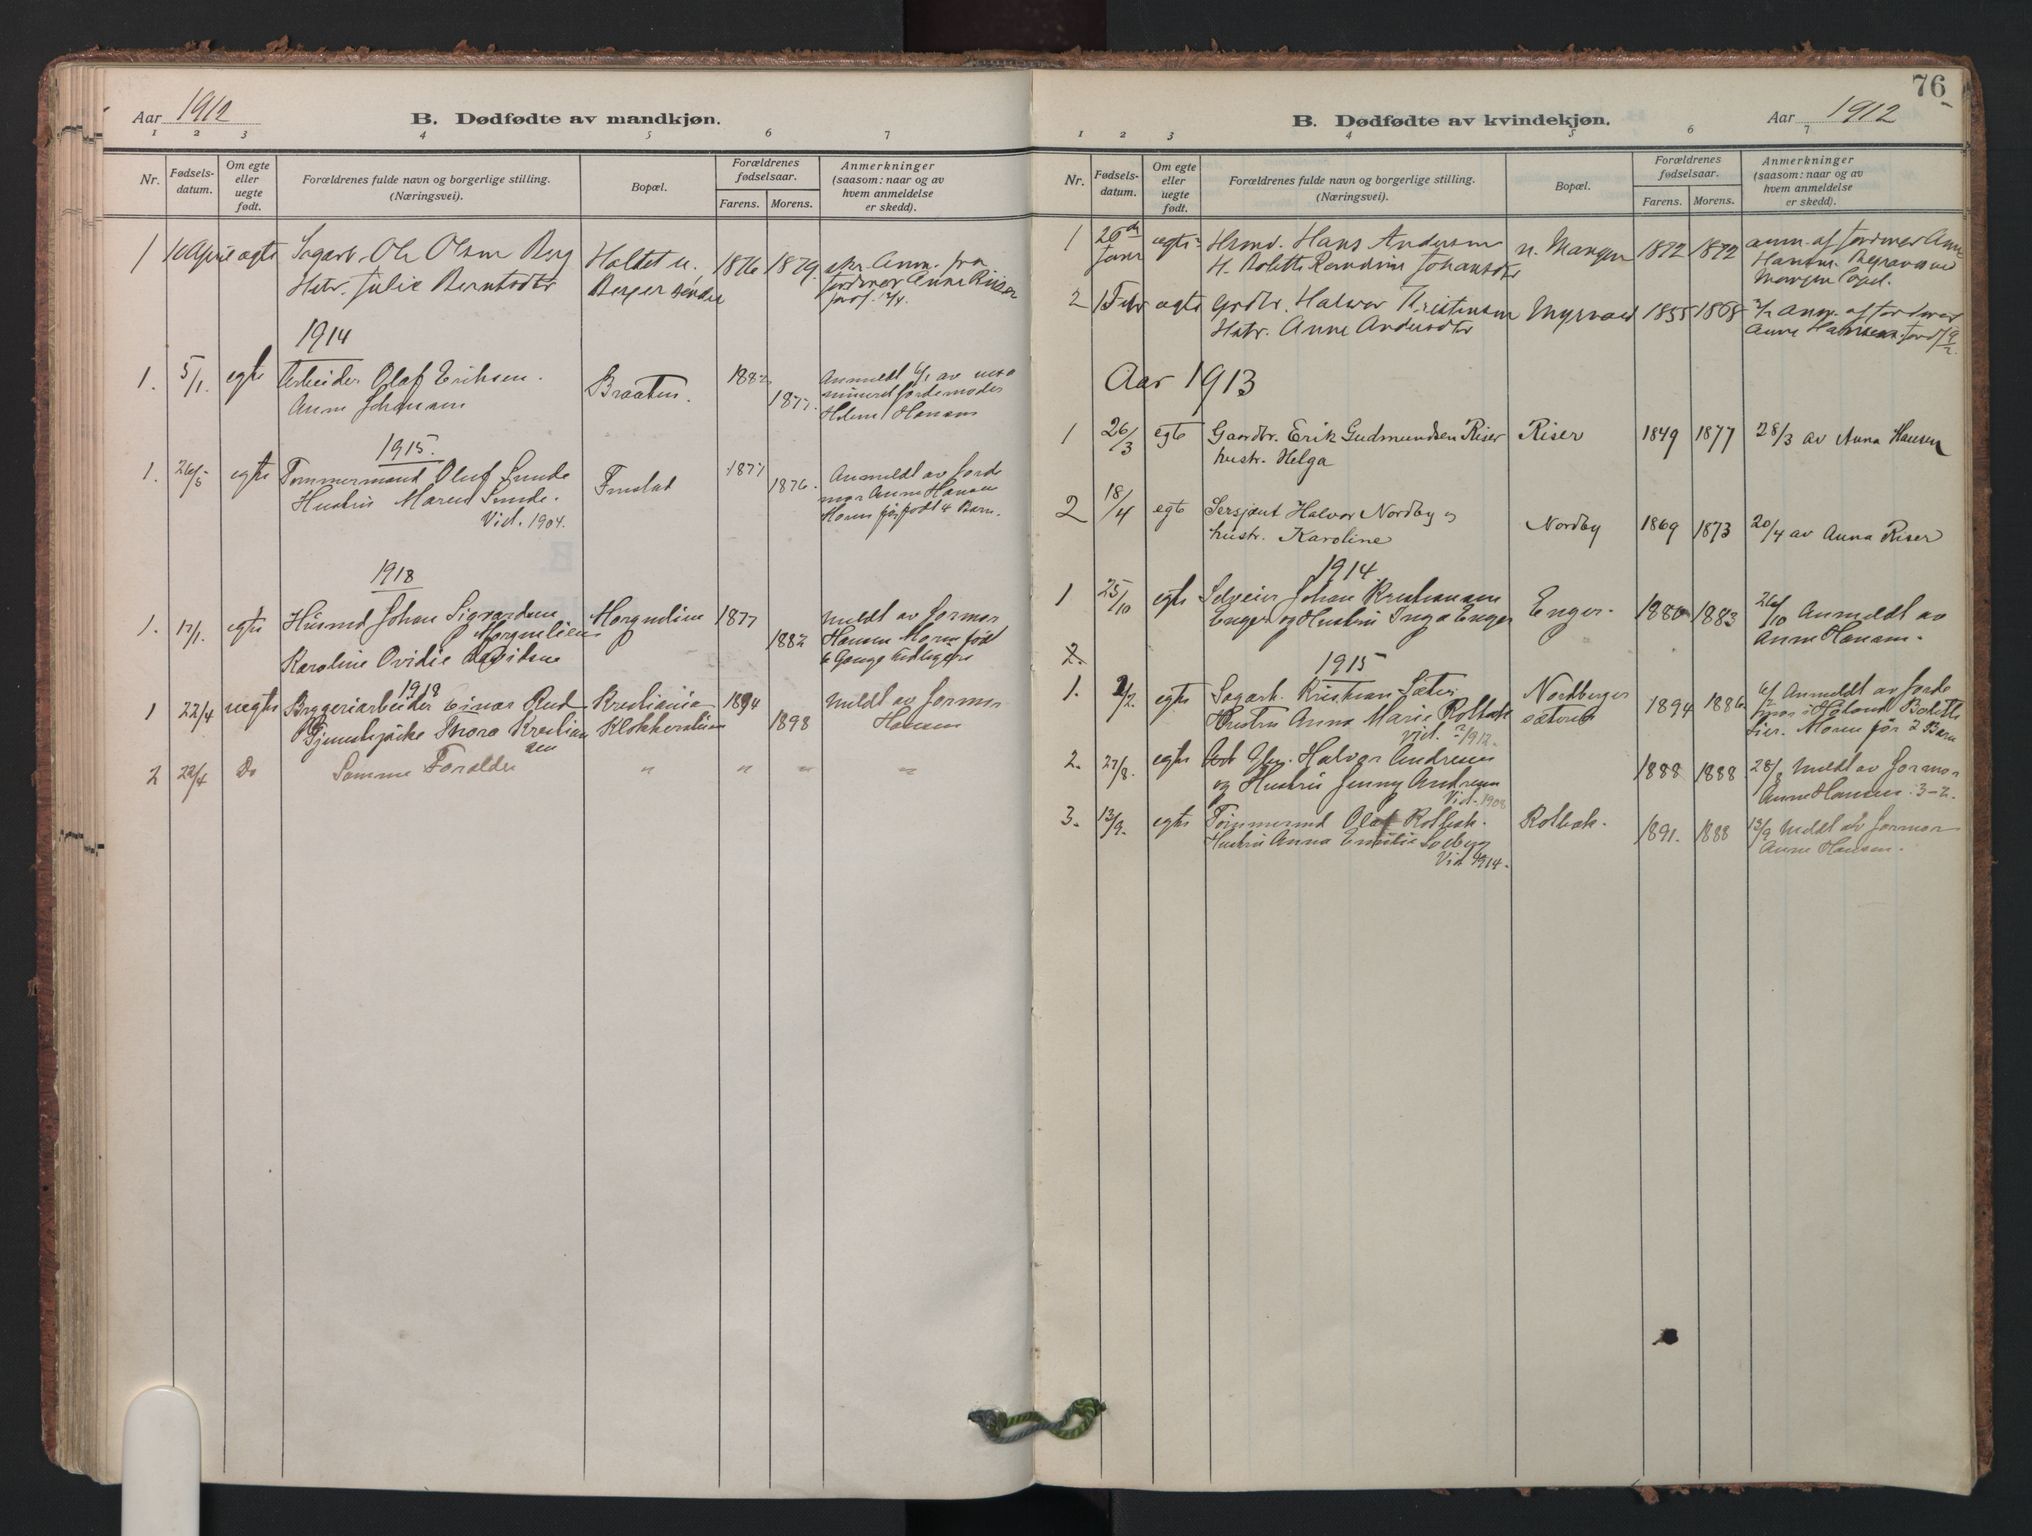 Aar 1912
B. Dødfødte av mandkjøn.
1 2 3 4 5 6 7
Nr.
Fødsels-
datum.
Om egte
eller
uegte
født.
Forældrenes fulde navn og borgerlige stilling.
(Næringsvei).
Bopæl.
Forældrenes
fødselsaar.
Farens. Morens.
Anmerkninger
(saasom: naar og av
hvem anmeldelse
er skedd).
1 10 April egte Sagarb. Ole Olsen Berg Holtet u. 1876 1879
Hstr. Julie Berntsdtr Berger søndre
1914
1. 5/1. egte Arbeider Olaf Eriksen. Braaten. 1882 1877. Anmeldt 6/1 av
Anne Johansen
Helene Hansen
1915.
1. 26/5 egte Tømmermand Oluf Sunde Finstad 1877 1876. Anmeldt av Jorde
Hustru Maren Sunde. mor Anne Hansen
Vid. 1904. Moren før født 4 Barn.
1918
1. 17/1. egte Husmd Johan Sigvardsen Morgenlien 1877 1882 Meldt av Jormor
Morgenlien Hansen Moren født
Karoline Ovidie 6 Gange tidligere
1918
1 22/4 uegte Bryggeriarbeider Einar Rud Kristiania 1894 1898 Meldt av Jormor
Pike Thora Kristian Klokkerstuen Hansen
sen
2 22/4 Do Samme Foraldre " " " "
76
B. Dødfødte av kvindekjøn.
Aar 1912
1 2 3 4 5 6 7
Nr.
Fødsels-
datum.
Om egte
eller
uegte
født.
Forældrenes fulde navn og borgerlige stilling.
(Næringsvei).
Bopæl.
Forældrenes
fødselsaar.
Farens. Morens.
Anmerkninger
(saasom: naar og av
hvem anmeldelse
er skedd).
1 26de egte Hans Andersen n. Mangen 1872 1872 anm. af Jordmor Anne
Janr H. Bolette Johansdtr Hansen.
2 1 Febr egte Grdbr. Halvor Kristensen Myrvold 1855 1868 2/2 Anm. af Jordmor
Hstr. Anne Andersdtr Anne Hansen.
Aar 1913
1 26/3 egte Gaardbr. Erik Gudmundsen Riser Riser 1849 1877 28/3 av Anna Hansen
hustr. Helga
2 18/4 egte Sersjant Halvor Nordby og Nordby 1869 1873 20/4 av Anna Riser
hustr. Karoline
1914
1 25/10 egte Selveier Johan Kristiansen Enger. 1880 1883 26/10 Anmeldt av
Enger og Hustru Inga Enger Anne Hansen.
2.
1915
1. 2/2. egte Sagarb. Kristian Sæter Nordberg 1894 1886 Anmeldt av Jorde
Hustru Anna Marie Rolbæk sæteren mor i Høland Bolette
Vid. 1912. Lier. Moren før 2 Barn
2. 27/8. egte Halvor Andresen 1888 1888 28/8 Meldt av Jormor
og Hustru Jenny Andresen Anne Hansen: 3-2.
Vid. 1908
3. 13/9. egte Tømmermd Olaf Rolbæk. Rolbæk. 1891. 1888 13/9 Meldt av Jormor
Hustru Anna Emilie Solberg Anne Hansen.
Vid. 1914.